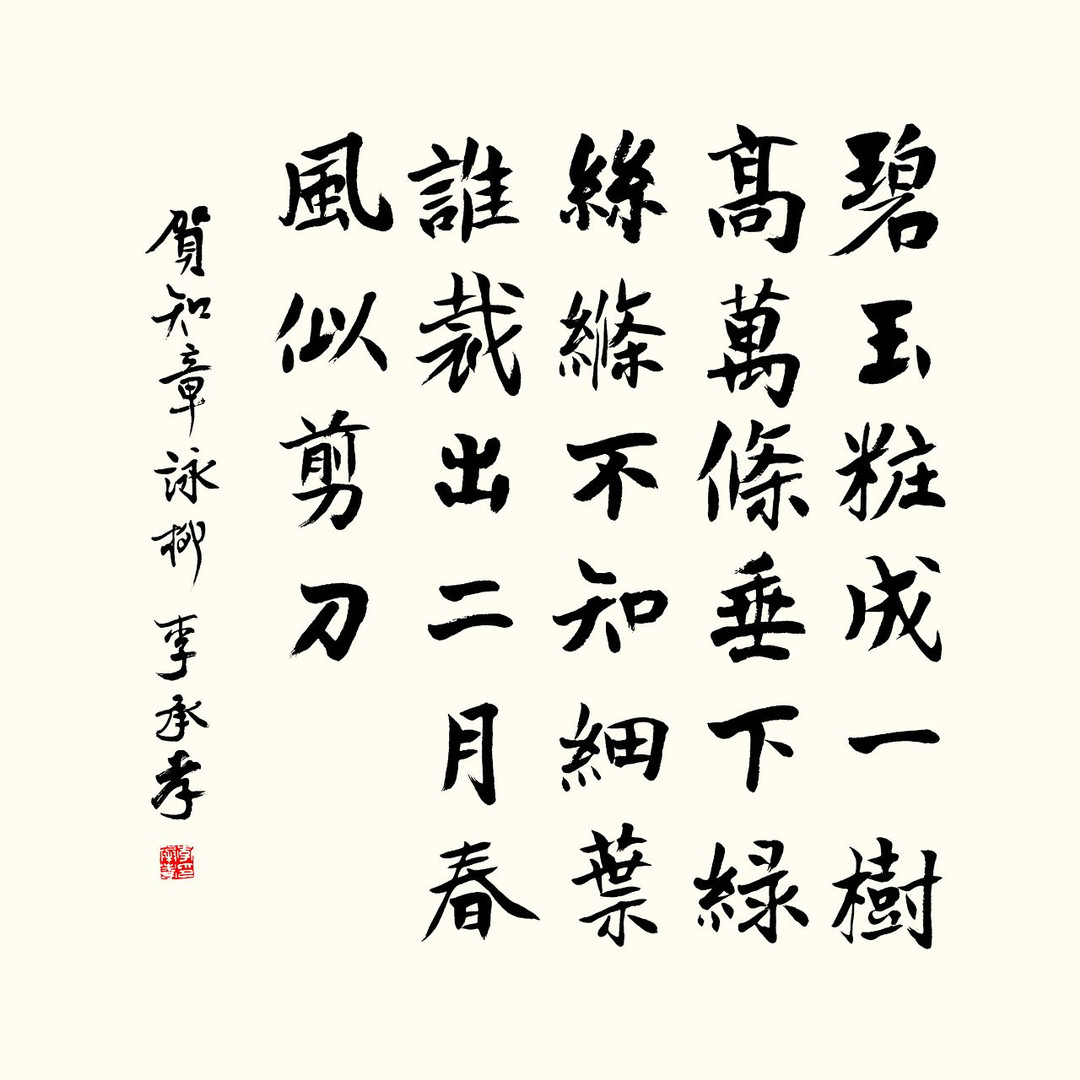 碧玉粧成一樹
高萬條垂下綠
絲縧不知細葉
誰裁出二月春
風似剪刀
賀知章詠柳 李承孝